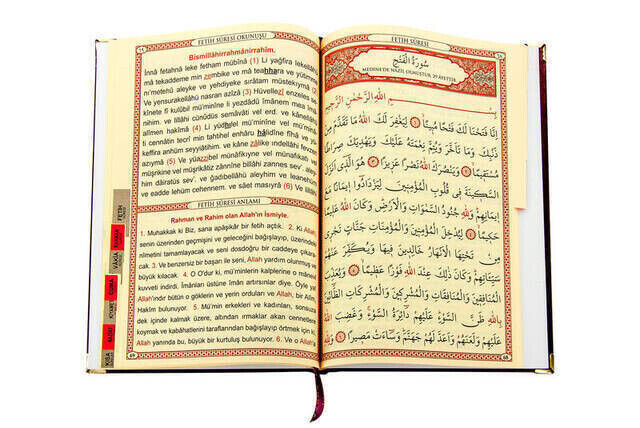 FETİH SÛRESİ OKUNUŞU
Bismillâhirrahmânirrahîm.
İnnâ fetahnâ leke fetham mübînâ (1) Li yağfira lekellâhu
mâ tekaddeme min zembike ve mâ teahhara ve yütimme
ni'metehû aleyke ve yehdiyeke sırâtam müstekıymâ (2)
Ve yensurakellâhü nasran azîzâ (3) Hüvellezî enzeles se
kînete fî kulûbil mü'minîne li yezdâdû îmânem mea îmâ
nihim. ve lillâhi cünûdüs semâvâti vel erd. ve kânellâhü
alîmen hakîmâ (4) Li yüdhilel mü'minîne vel mü'minâti
cennâtin tecrî min tahtihel enhâru hâlidîne fîhâ ve yü
keffira anhüm seyyiâtihim. ve kâne zâlike indellâhi fevzen
azıymâ (5) Ve yüazzibel münâfikıyne vel münâfikati vel
müşrikîne vel müşrikâtiz zânnîne billâhi zannes sev'. aley
him dâiratüs sev'. ve ğadibellâhü aleyhim ve leanehüm
ve eadde lehüm cehennem. ve sâet masıyrâ (6) Ve lillâhi
FETİH SÛRESİ ANLAMI
Rahman ve Rahim olan Allah'ın İsmiyle.
1. Muhakkak ki Biz, sana apaşikâr bir fetih açtık. 2. Ki Allah
senin üzerinden geçmişini ve geleceğini bağışlayıp, üzerindeki
nîmetini tamamlayacak ve seni dosdoğru bir caddeye çıkara
cak. 3. Ve benzersiz bir başarı ile seni, Allah yardım olunmuş ve
büyük kılacak. 4. O O'dur ki, mü'minlerin kalplerine o mânevî
kuvveti indirdi. İmânları üstüne îmân artırsınlar diye. Öyle ya
Allah'ındır bütün o göklerin ve yerin orduları ve Allah, bir Alîm
Hakîm bulunuyor. 5. Mü'min erkekleri ve kadınları, sonsuza
dek içinde kalmak üzere, altından ırmaklar akan cennetlere
koymak ve kabahatlerini taraflarından bağışlayıp örtmek için ki,
Allah yanında bu, büyük bir kurtuluş bulunuyor. 6. Ve o Allah'a
69
FETİH
VÂKIA
KISA
FETİH SÛRESİ
سُورَةُ الْفَتْحِ
MEDİNE'DE NÂZİL OLMUŞTUR, 29 ÂYETTİR
بِسْمِ اللهِ الرَّحْمٰنِ الرَّحِيمِ
اِنَّا فَتَحْنَا لَكَ فَتْحًا مُبِينًا ١ لِيَغْفِرَ لَكَ اللهُ مَا تَقَدَّمَ مِنْ
ذَنْبِكَ وَمَا تَاَخَّرَ وَيُتِمَّ نِعْمَتَهُ عَلَيْكَ وَيَهْدِيَكَ صِرَاطًا
مُسْتَقِيمًا ٢ وَيَنْصُرَكَ اللهُ نَصْرًا عَزِيزًا ٣ هُوَ الَّذِى اَنْزَلَ
السَّكِينَةَ فِى قُلُوبِ الْمُؤْمِنِينَ لِيَزْدَادُوا اِيمَانًا مَعَ
اِيمَانِهِمْ وَلِلّٰهِ جُنُودُ السَّمٰوَاتِ وَالْاَرْضِ وَكَانَ اللهُ عَلِيمًا
حَكِيمًا ٤ لِيُدْخِلَ الْمُؤْمِنِينَ وَالْمُؤْمِنَاتِ جَنَّاتٍ تَجْرِى
مِنْ تَحْتِهَا الْاَنْهَارُ خَالِدِينَ فِيهَا وَيُكَفِّرَ عَنْهُمْ
سَيِّئَاتِهِمْ وَكَانَ ذٰلِكَ عِنْدَ اللهِ فَوْزًا عَظِيمًا ٥ وَيُعَذِّبَ
الْمُنَافِقِينَ وَالْمُنَافِقَاتِ وَالْمُشْرِكِينَ وَالْمُشْرِكَاتِ الظَّانِّينَ
بِاللهِ ظَنَّ السَّوْءِ عَلَيْهِمْ دَائِرَةُ السَّوْءِ وَغَضِبَ اللهُ
عَلَيْهِمْ وَلَعَنَهُمْ وَاَعَدَّ لَهُمْ جَهَنَّمَ وَسَاءَتْ مَصِيرًا ٦ وَلِلّٰهِ
68